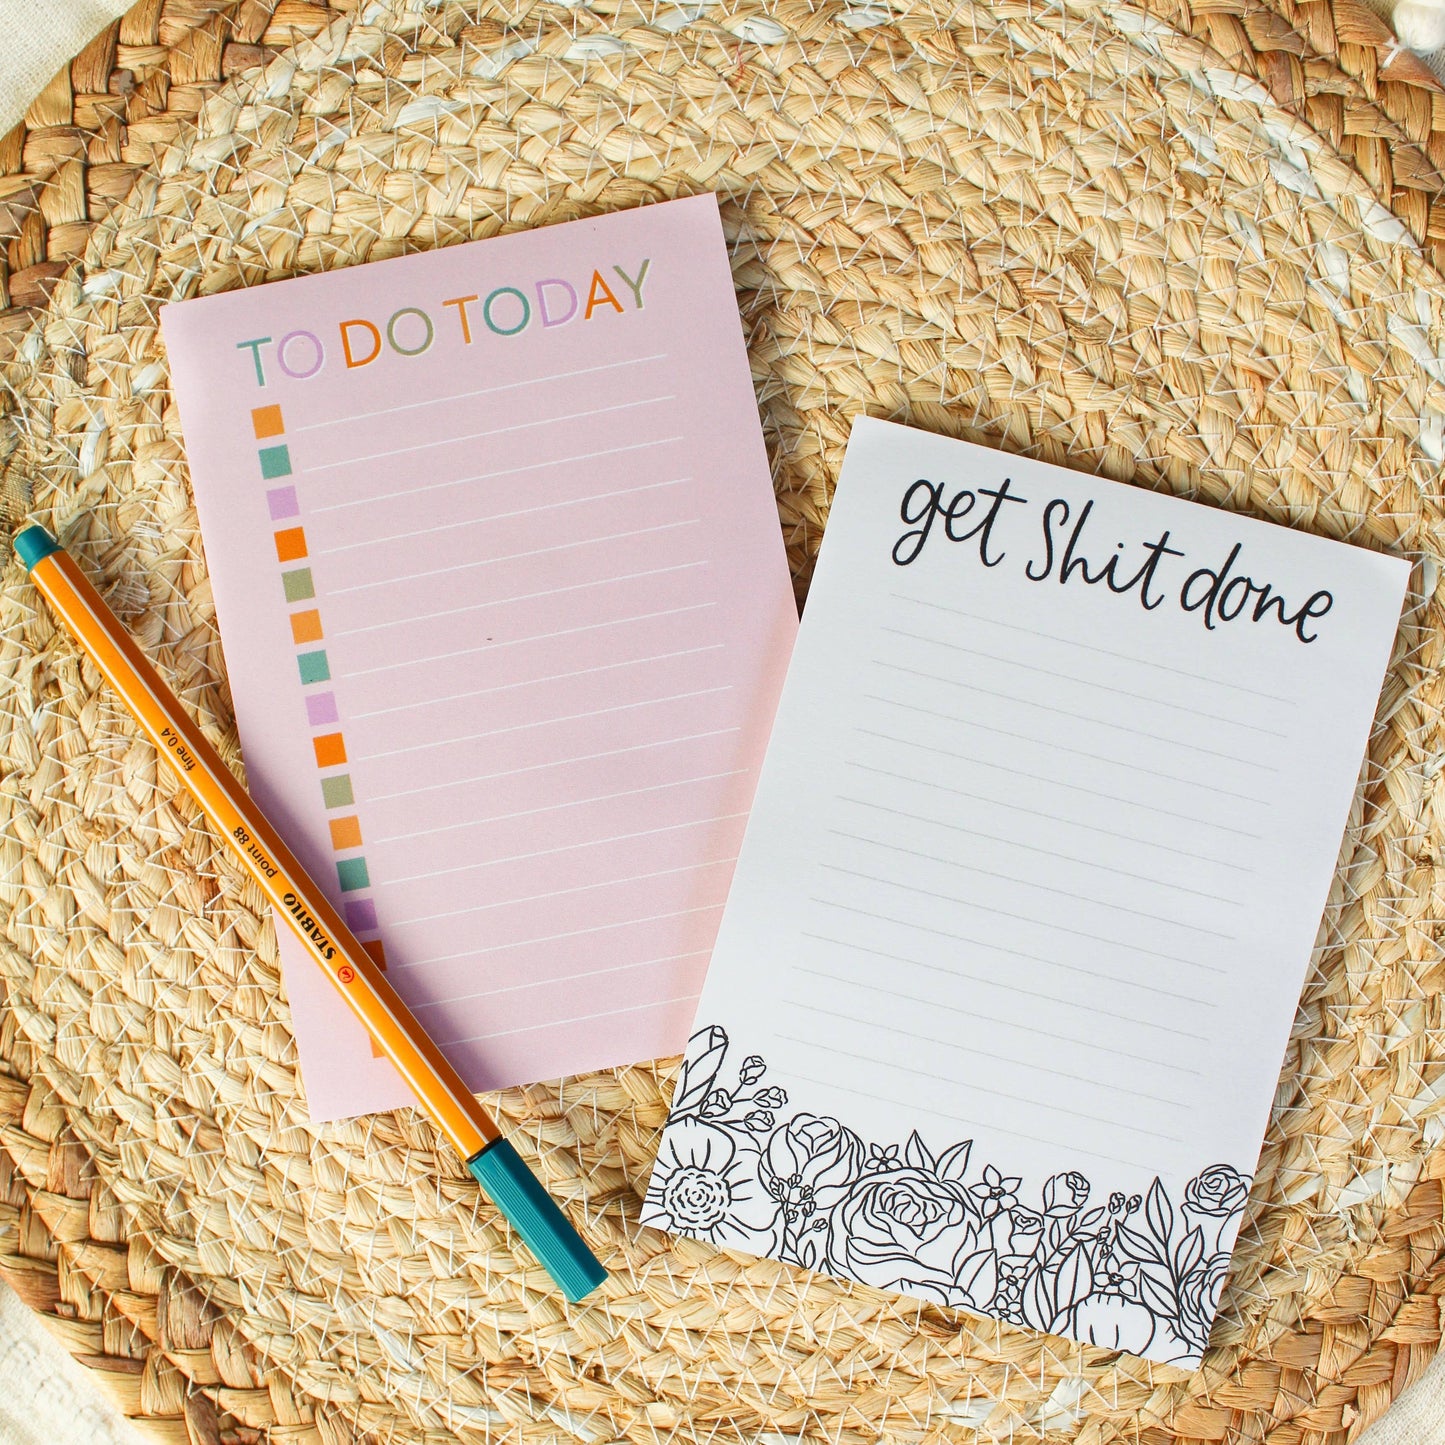 TO DO TODAY
get Shit done
fine 0,4
point 88
STABILO